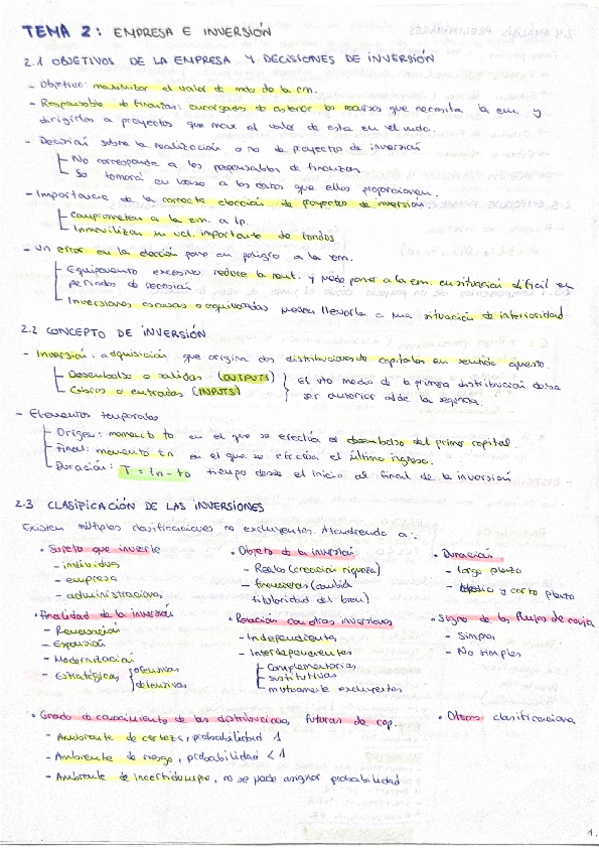 TEMA 2: EMPRESA E INVERSIÓN
2.1 OBJETIVOS DE LA EMPRESA Y DECISIONES DE INVERSIÓN
- Objetivo: maximizar el valor de mdo de la em.
- Responsable de finanzas: encargados de obtener los recursos que necesita la em. y
dirigirlos a proyectos que max el valor de esta en el mdo.
- Decisión sobre la realización o no de proyectos de inversión
No corresponde a los responsables de finanzas
Se tomará en base a los datos que ellos proporcionen.
- Importancia de la correcta elección de proyectos de inversión.
Comprometen a la em. a lp.
Inmovilizan un vol. importante de fondos
- Un error en la elección pone en peligro a la em.
Equipamiento excesivo reduce la rent. y puede poner a la em. en situación difícil en
periodos de recesión
Inversiones escasas o equivocadas pueden llevarla a una situación de inferioridad
2.2 CONCEPTO DE INVERSIÓN
- Inversión: adquisición que origina dos distribuciones de capitales en sentido opuesto.
Desembolso o salidas (OUTPUTS)
Cobros o entradas (INPUTS)
El vto medio de la primera distribución debe
ser anterior al de la segunda.
- Elementos temporales
Origen: momento to en el que se efectúa el desembolso del primer capital.
Final: momento tn en el que se efectúa el último ingreso.
Duración: T = tn - to tiempo desde el inicio al final de la inversión
2.3 CLASIFICACIÓN DE LAS INVERSIONES
Existen múltiples clasificaciones no excluyentes. Atendiendo a:
• Sujeto que invierte
- individuos
- empresa
- administraciones
• Objeto de la inversión
- Reales (creación riqueza)
- financieras (cambio
titularidad del bien)
• Duración
- largo plazo
- y corto plazo
• Finalidad de la inversión
- Renovación
- Expansión
- Modernización
- Estratégicas
ofensivas
defensivas
• Relación con otras inversiones
- Independientes
- Interdependientes
Complementarias
sustitutivas
mutuamente excluyentes
• Signo de los flujos de caja
- Simples
- No simples
• Grado de conocimiento de las distribuciones futuras de cap.
- Ambiente de certeza, probabilidad 1
- Ambiente de riesgo, probabilidad < 1
- Ambiente de incertidumbre, no se puede asignar probabilidad
• Otras clasificaciones
1.